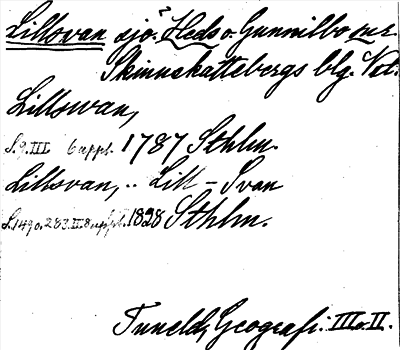 Lillsvan sjö. Heds o. Gunnilbo snr.
Skinnskattebergs blg. Vstl.
Lillswan,
S. 9. III 6 uppl. 1787 Sthlm.
Lillsvan, .. Lill-Svan
S. 149 o. 283. II. 8 uppl. 1828 Sthlm.
Tuneld, Geografi. III o. II.